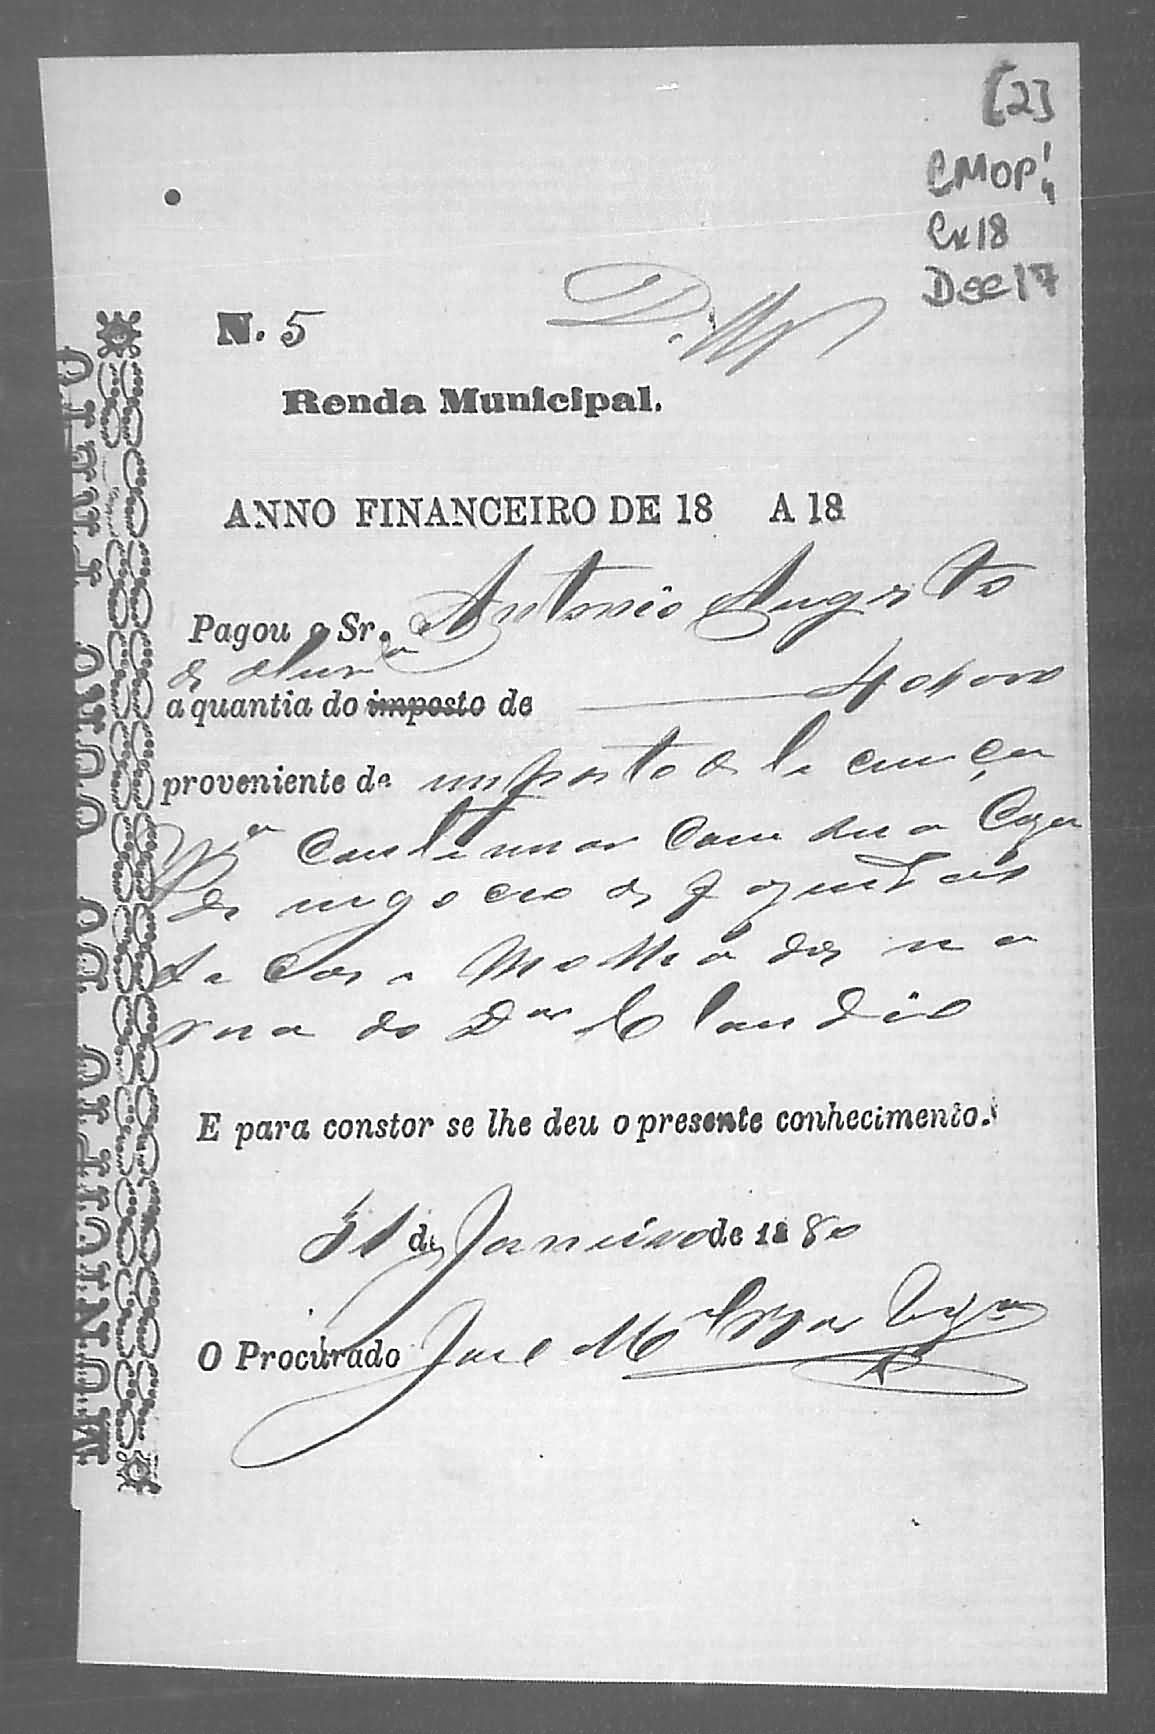 [2]
CMOP
Cx 18
Doc 17
N. 5
Renda Municipal.
ANNO FINANCEIRO DE 18 A 18
Pagou o Sr. Antonio Augusto
de Olivrª
a quantia do imposto de 4$000
proveniente de imposto de licença
Pª continuar com sua Caza
de negocio de fazendas
seccos e Molhados na
rua do Dor Claudio
E para constor se lhe deu o presente conhecimento.
31 de Janeiro de 1880
O Procurado José Mel
MUNICIPIO DO OURO PRETO